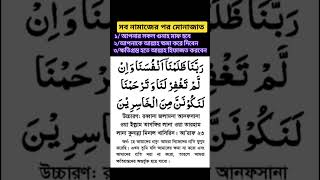 সব নামাজের পর মোনাজাত
১/ আপনার সকল গুনাহ মাফ হবে
২/আপনাকে আল্লাহ ক্ষমা করে দিবেন
৩/ক্ষতিগ্রস্ত হতে আল্লাহ হিফাজত করবেন
رَبَّنَا ظَلَمْنَا أَنْفُسَنَا وَإِنْ
لَمْ تَغْفِرْ لَنَا وَتَرْحَمْنَا
لَنَكُونَنَّ مِنَ الْخَاسِرِينَ
উচ্চারণ: রব্বানা জলামনা আনফুসানা
ওয়া ইল্লাম তাগফির লানা ওয়া তারহাম
লানা কুনান্না মিনাল খাসিরিন। আ'রাফ ২৩